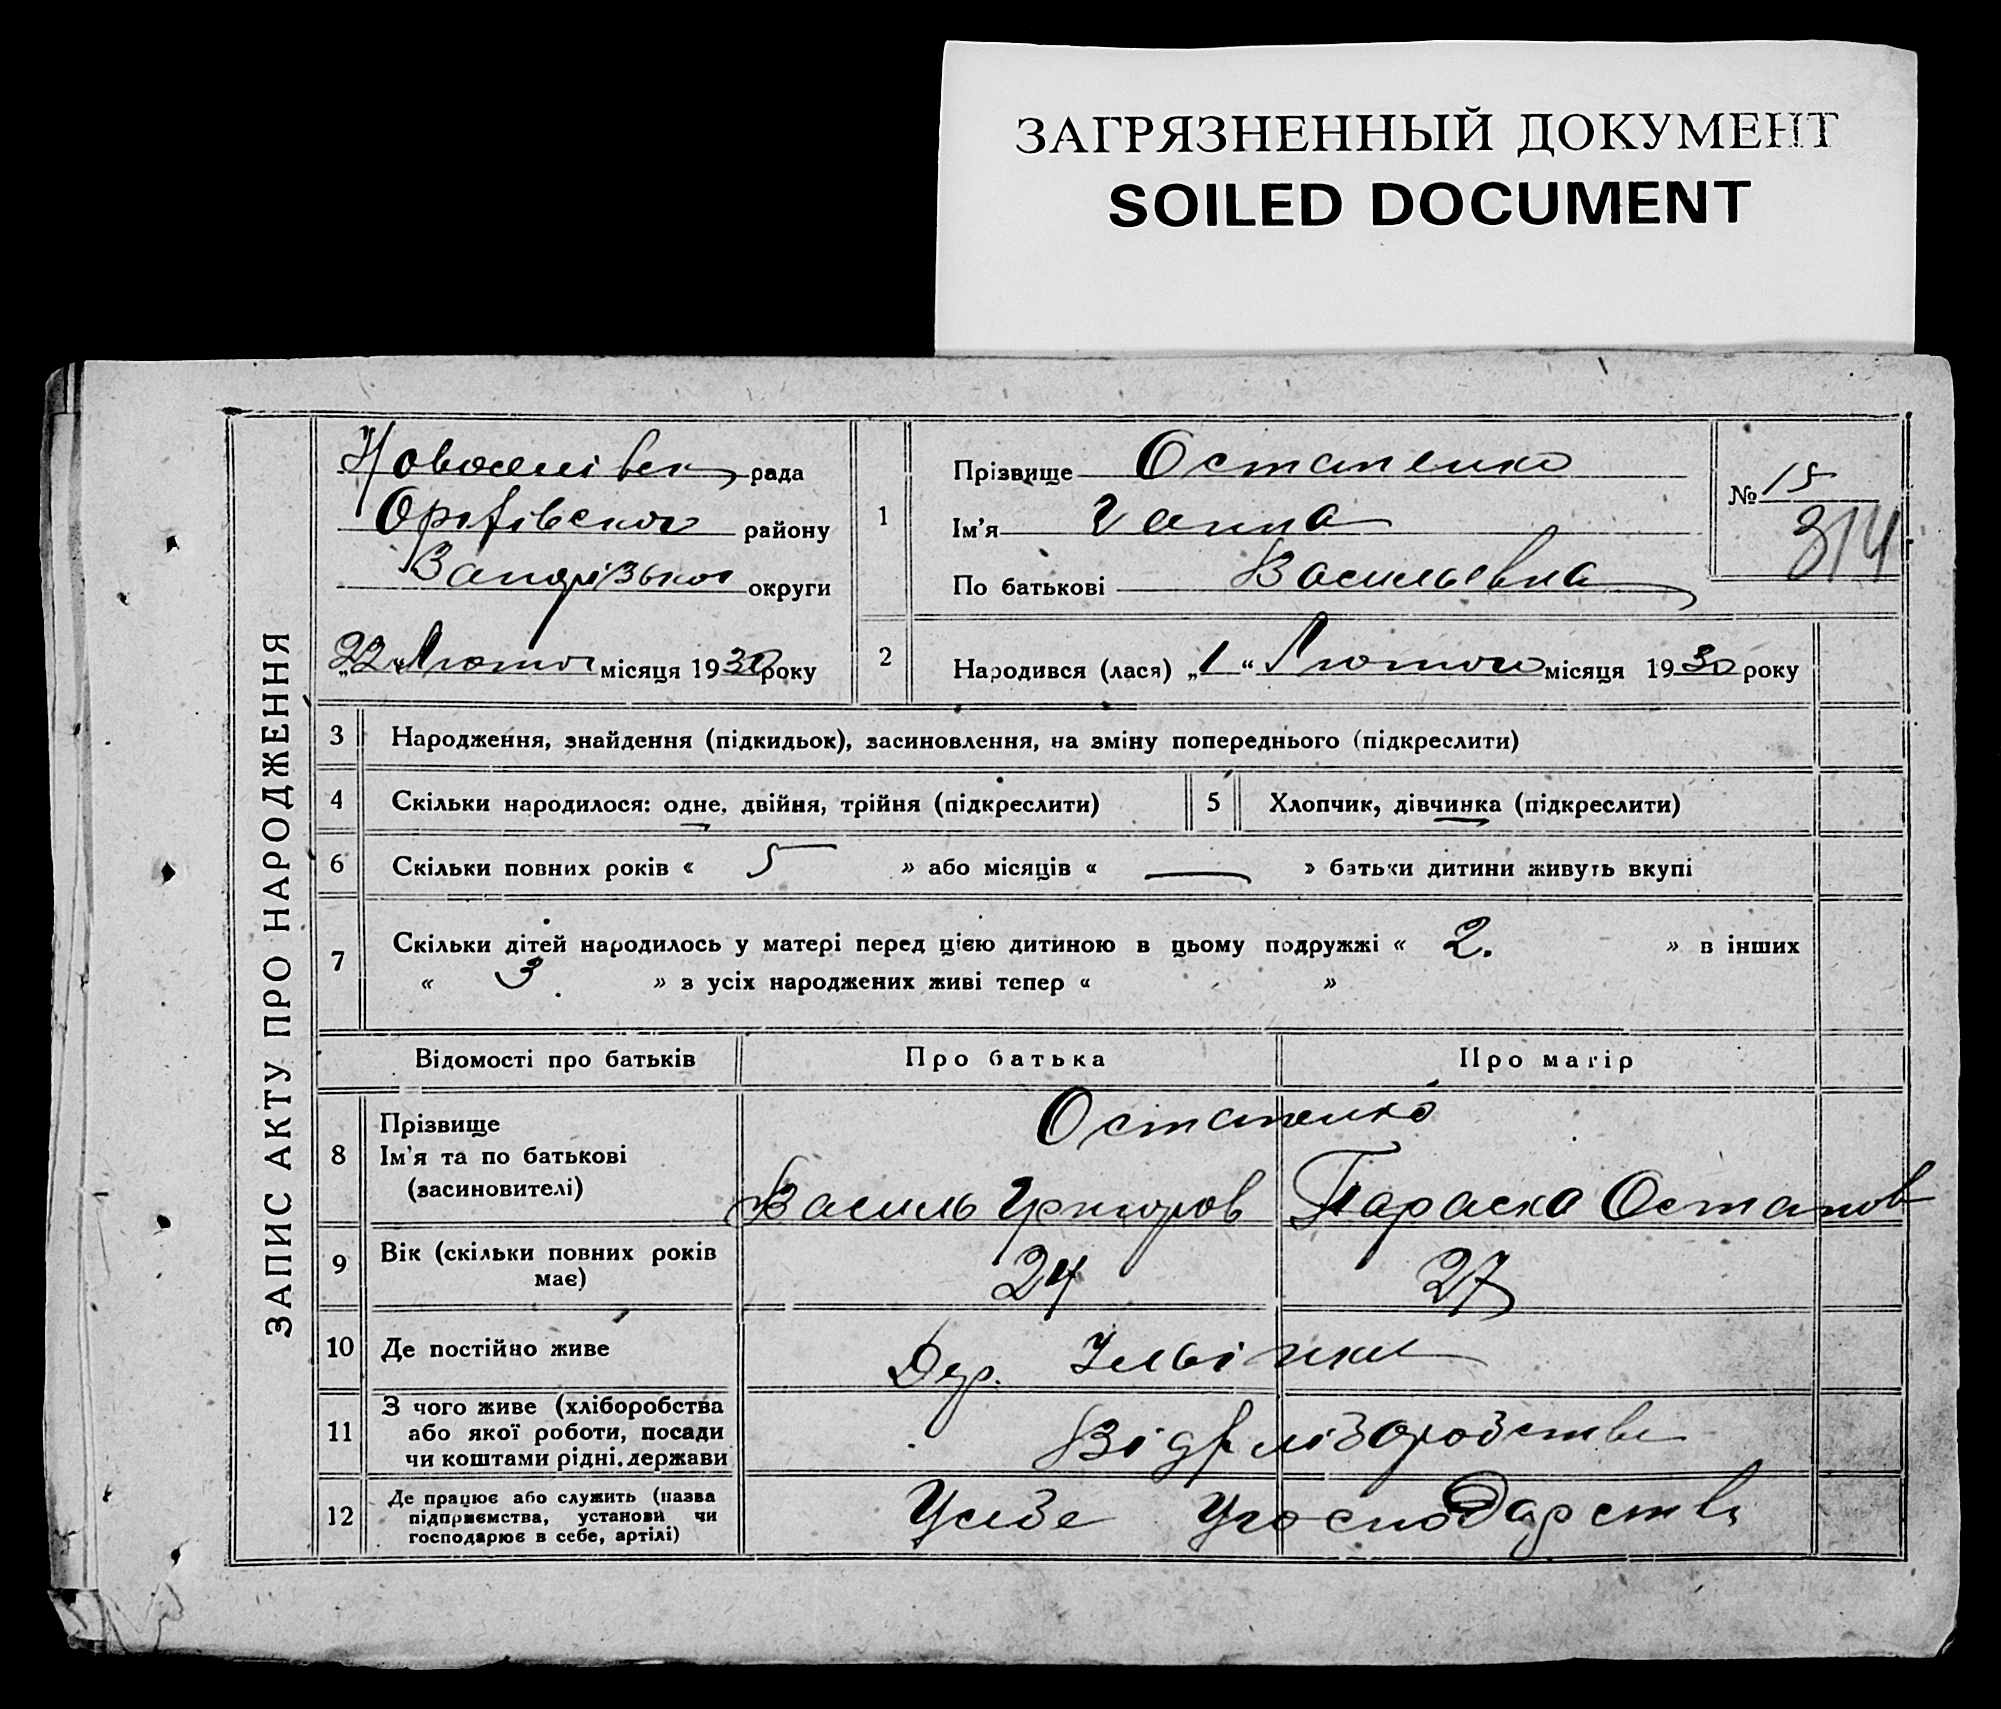 ЗАГРЯЗНЕННЫЙ ДОКУМЕНТ
SOILED DOCUMENT
ЗАПИС АКТУ ПРО НАРОДЖЕННЯ
рада
району
округи
„22“ Лютого місяця 1930 року
1 Прізвище Остапенко
Ім'я Ганна
По батькові Васильевна
№ 15
314
2 Народився (лася) „1“ Лютого місяця 1930 року
3 Народження, знайдення (підкидьок), засиновлення, на зміну попереднього (підкреслити)
4 Скільки народилося: одне, двійня, трійня (підкреслити)
5 Хлопчик, дівчинка (підкреслити)
6 Скільки повних років « 5 » або місяців « — » батьки дитини живуть вкупі
7 Скільки дітей народилось у матері перед цією дитиною в цьому подружжі « 2. » в інших
« 3 » з усіх народжених живі тепер « »
Відомості про батьків Про батька Про матір
8 Прізвище Остапенко
Ім'я та по батькові
(засиновителі) Василь Григоров Параска Остапов
9 Вік (скільки повних років 24 27
має)
10 Де постійно живе Дер.
11 З чого живе (хліборобства
або якої роботи, посади
чи коштами рідні, держави
12 Де працює або служить (назва
підприємства, установи чи
господарює в себе, артілі)